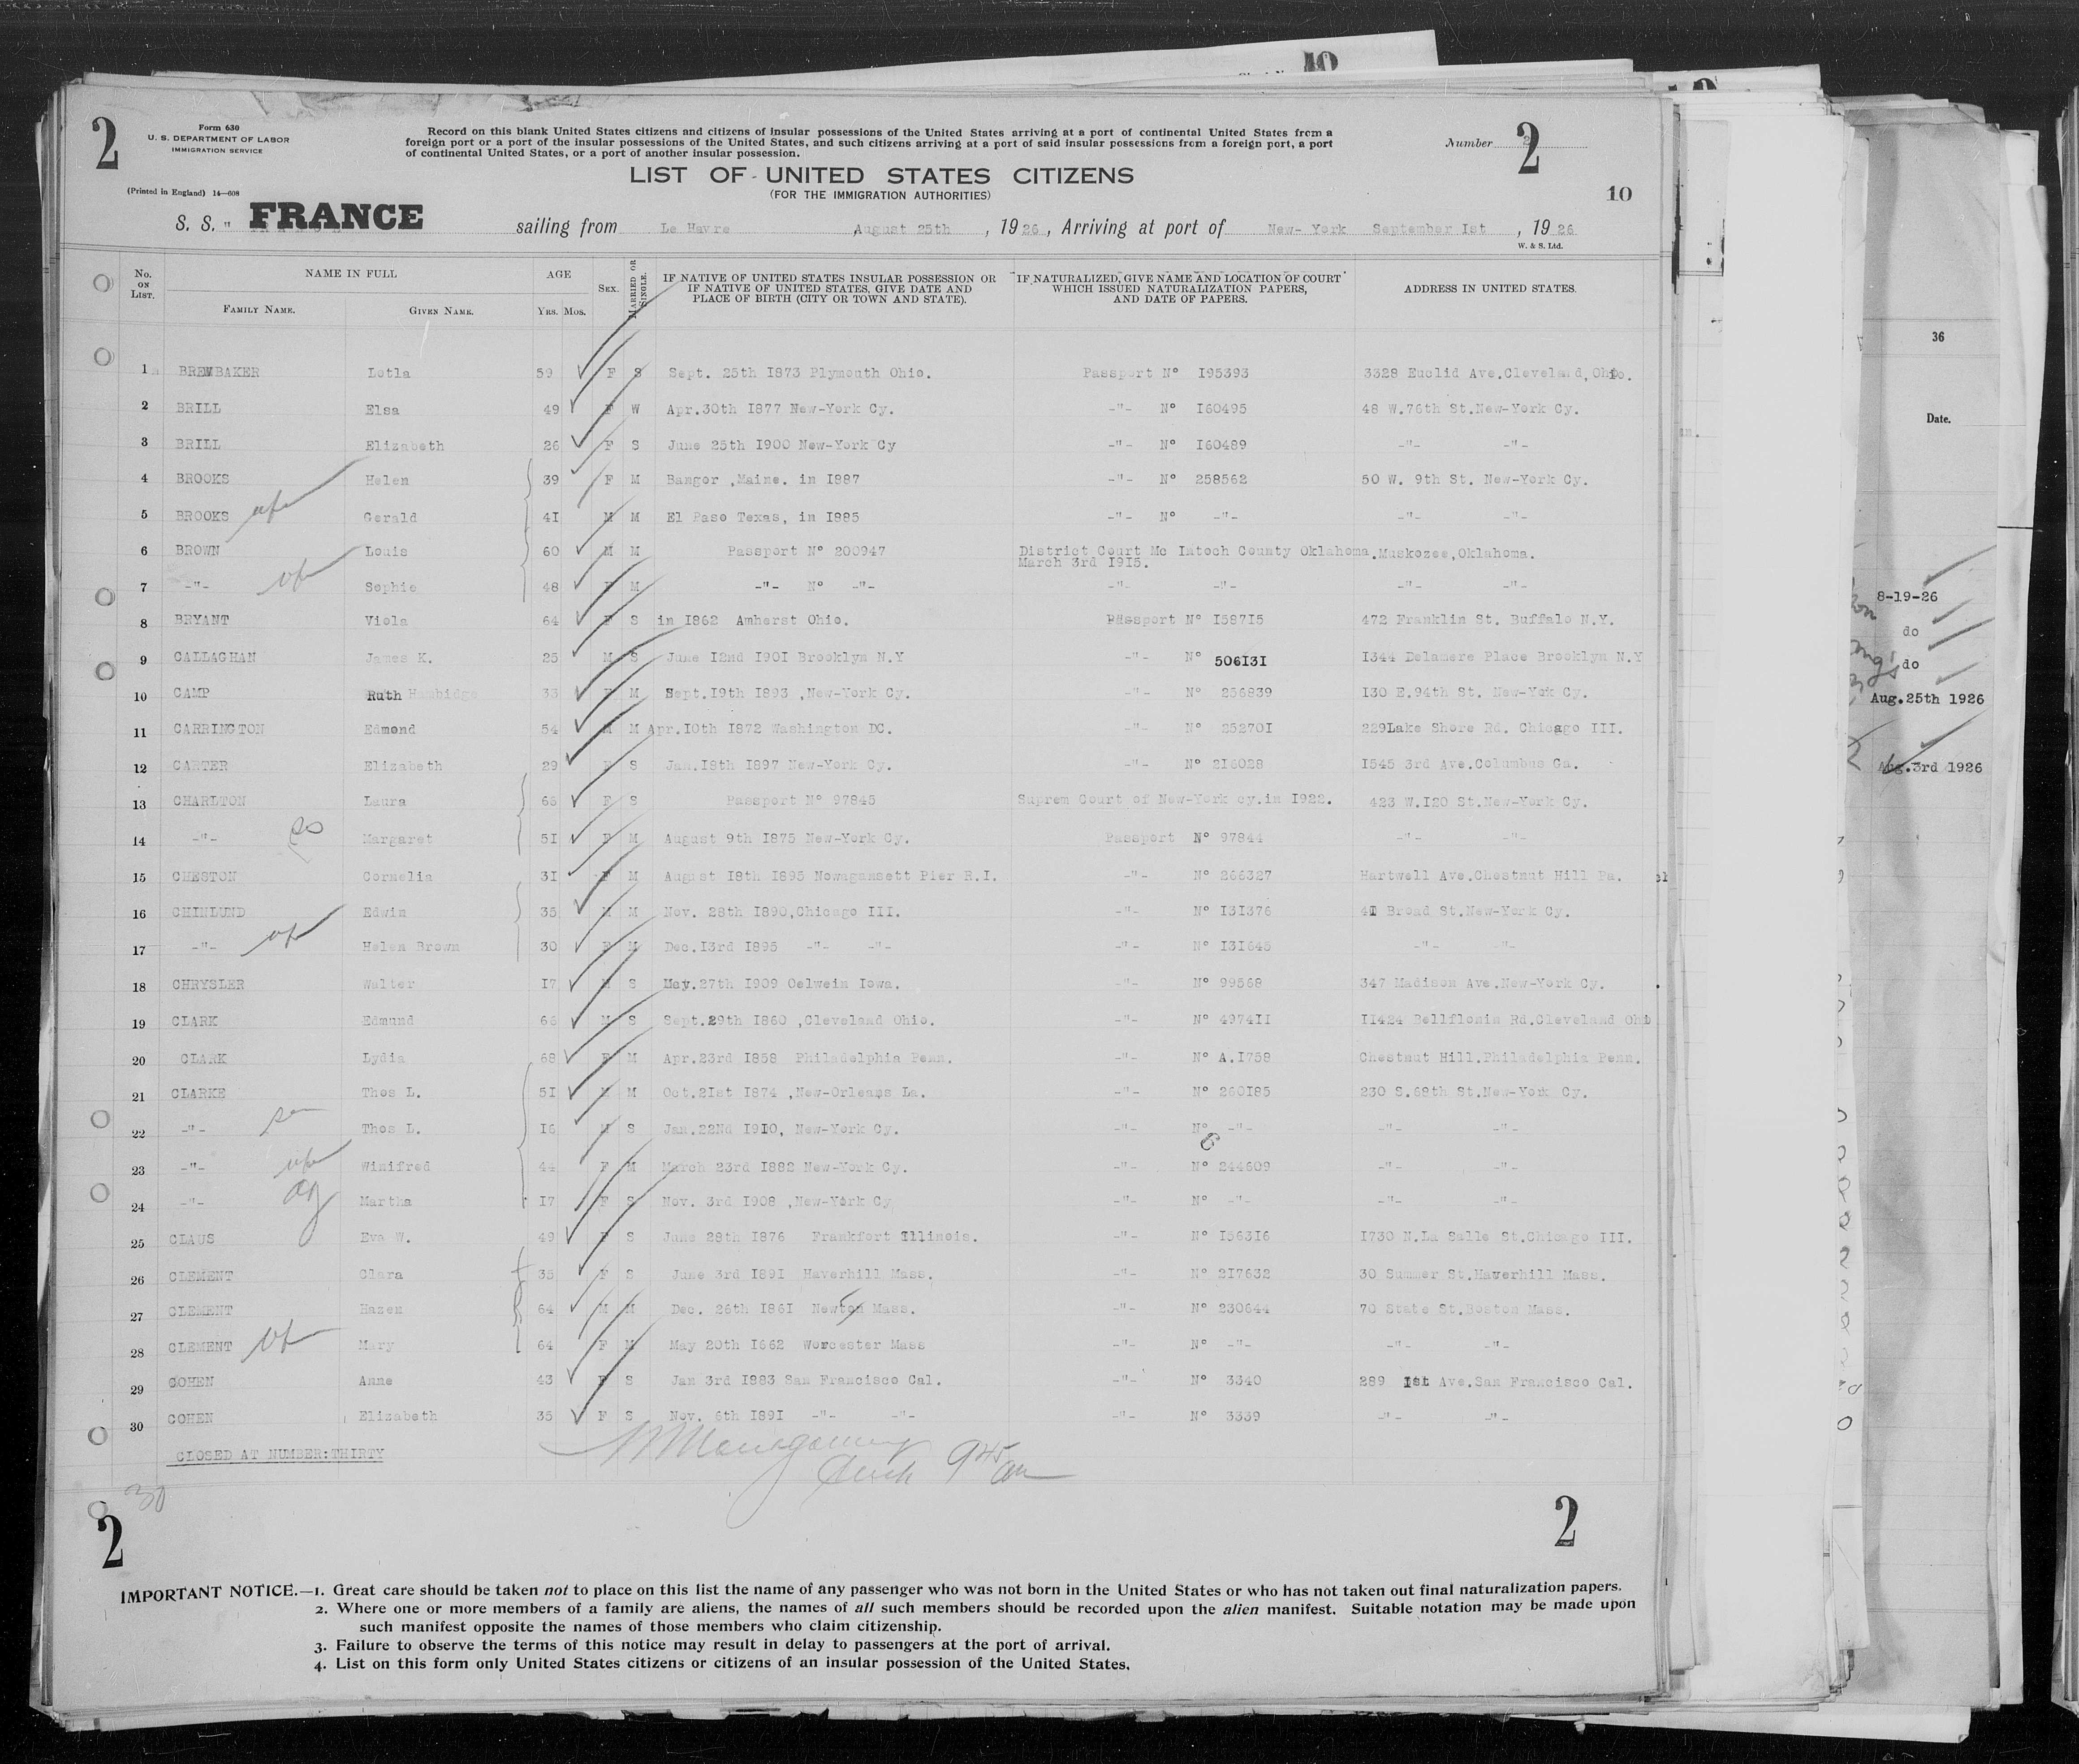 10
2
Form 630
U. S. DEPARTMENT OF LABOR
IMMIGRATION SERVICE
(Printed in England) 14—608
Record on this blank United States citizens and citizens of insular possessions of the United States arriving at a port of continental United States from a
foreign port or a port of the insular possessions of the United States, and such citizens arriving at a port of said insular possessions from a foreign port, a port
of continental United States, or a port of another insular possession.
Number 2
2
LIST OF UNITED STATES CITIZENS
(FOR THE IMMIGRATION AUTHORITIES)
10
S. S. " FRANCE sailing from Le Havre August 25th , 1926, Arriving at port of New-York September Ist , 1926
W. & S. Ltd.
No. ON LIST. NAME IN FULL FAMILY NAME. GIVEN NAME. AGE YRS. MOS. SEX. MARRIED OR SINGLE. IF NATIVE OF UNITED STATES INSULAR POSSESSION OR IF NATIVE OF UNITED STATES, GIVE DATE AND PLACE OF BIRTH (CITY OR TOWN AND STATE). IF NATURALIZED, GIVE NAME AND LOCATION OF COURT WHICH ISSUED NATURALIZATION PAPERS, AND DATE OF PAPERS. ADDRESS IN UNITED STATES.
1 BREWBAKER Lotla 59 F S Sept. 25th I873 Plymouth Ohio. Passport N° I95393 3328 Euclid Ave.Cleveland, Ohio.
2 BRILL Elsa 49 F W Apr.30th I877 New-York Cy. -"- N° I60495 48 W.76th St.New-York Cy.
3 BRILL Elizabeth 26 F S June 25th I900 New-York Cy -"- N° I60489 -"- -"-
4 BROOKS Helen 39 F M Bangor ,Maine. in I887 -"- N° 258562 50 W. 9th St. New-York Cy.
5 BROOKS Gerald 4I M M El Paso Texas, in I885 -"- N° -"- -"- -"-
6 BROWN Louis 60 M M Passport N° 200947 District Court Mc Intoch County Oklahoma.Muskozee,Oklahoma.
March 3rd I9I5.
7 -"- Sophie 48 F M -"- N° -"- -"- -"- -"- -"-
8 BRYANT Viola 64 F S in I862 Amherst Ohio. Passport N° I587I5 472 Franklin St. Buffalo N.Y.
9 CALLAGHAN James K. 25 M S June I2nd I90I Brooklyn N.Y -"- N° 506I3I I344 Delamere Place Brooklyn N.Y
10 CAMP Ruth Hambidge 33 F M Sept.I9th I893 ,New-York Cy. -"- N° 256839 I30 E.94th St. New-York Cy.
11 CARRINGTON Edmond 54 M M Apr.I0th I872 Washington DC. -"- N° 25270I 229Lake Shore Rd. Chicago III.
12 CARTER Elizabeth 29 F S Jan.I8th I897 New-York Cy. -"- N° 2I6028 I545 3rd Ave.Columbus Ga.
13 CHARLTON Laura 66 F S Passport N° 97845 Suprem Court of New-York cy.in I922. 423 W.I20 St.New-York Cy.
14 -"- Margaret 5I F M August 9th I875 New-York Cy. Passport N° 97844 -"- -"-
15 CHESTON Cornelia 3I F M August I8th I895 Nowagansett Pier R.I. -"- N° 266327 Hartwell Ave.Chestnut Hill Pa.
16 CHINLUND Edwin 35 M M Nov. 28th I890,Chicago III. -"- N° I3I376 4I Broad St.New-York Cy.
17 -"- Helen Brown 30 F M Dec.I3rd I895 -"- -"- -"- N° I3I645 -"- -"-
18 CHRYSLER Walter I7 M S May.27th I909 Oelwein Iowa. -"- N° 99568 347 Madison Ave.New-York Cy.
19 CLARK Edmund 66 M S Sept.29th I860 ,Cleveland Ohio. -"- N° 4974II II424 Bellflonin Rd.Cleveland Ohio
20 CLARK Lydia 68 F M Apr.23rd I858 Philadelphia Penn. -"- N° A.I758 Chestnut Hill.Philadelphia Penn.
21 CLARKE Thos L. 5I M M Oct.2Ist I874 ,New-Orleans La. -"- N° 260I85 230 S.68th St.New-York Cy.
22 -"- Thos L. I6 M S Jan.22Nd I9I0, New-York Cy. -"- N° -"- -"- -"-
23 -"- Winifred 44 F M March 23rd I882 New-York Cy. -"- N° 244609 -"- -"-
24 -"- Martha I7 F S Nov. 3rd I908 ,New-York Cy -"- N° -"- -"- -"-
25 CLAUS Eva W. 49 F S June 28th I876 Frankfort Illinois. -"- N° I563I6 I730 N.La Salle St.Chicago III.
26 CLEMENT Clara 35 F S June 3rd I89I Haverhill Mass. -"- N° 2I7632 30 Summer St.Haverhill Mass.
27 CLEMENT Hazen 64 M M Dec. 26th I86I Newton Mass. -"- N° 230644 70 State St.Boston Mass.
28 CLEMENT Mary 64 F M May 20th I662 Worcester Mass -"- N° -"- -"- -"-
29 COHEN Anne 43 F S Jan 3rd I883 San Francisco Cal. -"- N° 3340 289 Ist Ave.San Francisco Cal.
30 COHEN Elizabeth 35 F S Nov. 6th I89I -"- -"- -"- N° 3339 -"- -"-
CLOSED AT NUMBER:THIRTY
30
2
2
IMPORTANT NOTICE.—1. Great care should be taken not to place on this list the name of any passenger who was not born in the United States or who has not taken out final naturalization papers.
2. Where one or more members of a family are aliens, the names of all such members should be recorded upon the alien manifest. Suitable notation may be made upon
such manifest opposite the names of those members who claim citizenship.
3. Failure to observe the terms of this notice may result in delay to passengers at the port of arrival.
4. List on this form only United States citizens or citizens of an insular possession of the United States.
36
Date.
8-19-26
do
do
Aug.25th 1926
Aug.3rd 1926